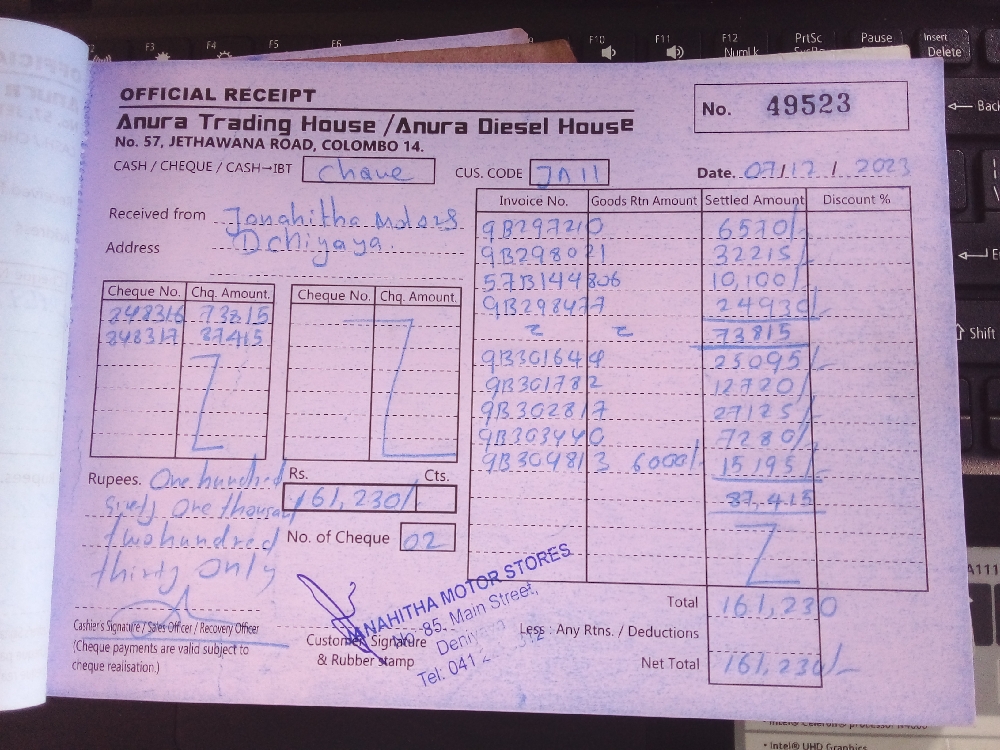 OFFICIAL RECEIPT
No. 49523
Anura Trading House / Anura Diesel House
No. 57, JETHAWANA ROAD, COLOMBO 14.
CASH / CHEQUE / CASH–IBT CUS. CODE JA 11 Date. 07/12/2023
Received from Janahitha Motors
Address
Invoice No. Goods Rtn Amount Settled Amount Discount %
9B297210 6570/-
9B298021 32215/-
57B144806 10,100/-
9B298477 24930/-
73815
9B301644 25095/-
9B301782 12720/-
9B302817 27125/-
9B303440 7280/-
9B304813 6000/- 15195/-
87,415
Cheque No. Chq. Amount. Cheque No. Chq. Amount.
348316 73815
348317 87415
Rupees. One hundred
sixty one thousand
two hundred
thirty only
Rs. Cts.
161,230/-
No. of Cheque 02
Total 161,230
Less : Any Rtns. / Deductions
Net Total 161,230/-
Cashier's Signature / Sales Officer / Recovery Officer
(Cheque payments are valid subject to
cheque realisation.)
Customer Signature
& Rubber stamp
JANAHITHA MOTOR STORES
No. 85, Main Street,
Deniyaya
Tel: 041 2
F3 F4 F5 F6 F10 F11 F12 PrtSc Pause Insert
NumLk Delete
Back
Shift
A111
• Intel® UHD Graphics